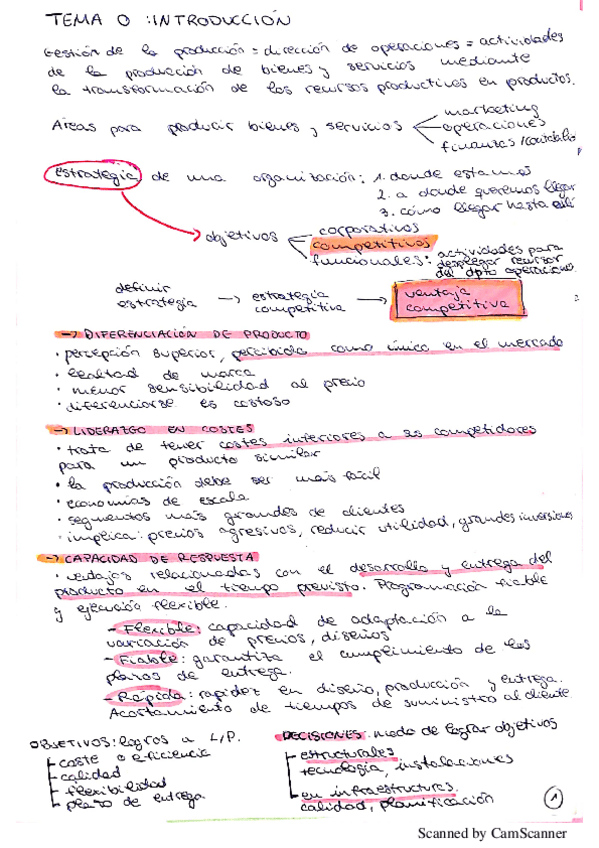 TEMA 0 : INTRODUCCIÓN
Gestión de la producción = dirección de operaciones = actividades
de la producción de bienes y servicios mediante
la transformación de los recursos productivos en productos.
Áreas para producir bienes y servicios
marketing
operaciones
finanzas /contable
estrategia de una organización: 1. donde estamos
2. a donde queremos llegar
3. cómo llegar hasta allí
objetivos
corporativos
competitivos
funcionales: actividades para
desplegar recursos
del dpto operaciones.
definir estrategia → estrategia competitiva → ventaja competitiva
→ DIFERENCIACIÓN DE PRODUCTO
· percepción superior, percibida como único en el mercado
· lealtad de marca
· menor sensibilidad al precio
· diferenciarse es costoso
→ LIDERAZGO EN COSTES
· trata de tener costes inferiores a sus competidores
para un producto similar
· la producción debe ser más fácil
· economías de escala
· segmentos más grandes de clientes
· implica: precios agresivos, reducir utilidad, grandes inversiones
→ CAPACIDAD DE RESPUESTA
· ventajas relacionadas con el desarrollo y entrega del
producto en el tiempo previsto. Programación fiable
y ejecución flexible.
- Flexible: capacidad de adaptación a la
variación de precios, diseños
- Fiable: garantiza el cumplimiento de los
plazos de entrega.
- Rápida: rapidez en diseño, producción y entrega.
Acortamiento de tiempos de suministro al cliente
OBJETIVOS: logros a L/P.
- coste o eficiencia
- calidad
- flexibilidad
- plazo de entrega
DECISIONES: modo de lograr objetivos
- estructurales
tecnología, instalaciones
- en infraestructuras.
calidad, planificación
1
Scanned by CamScanner